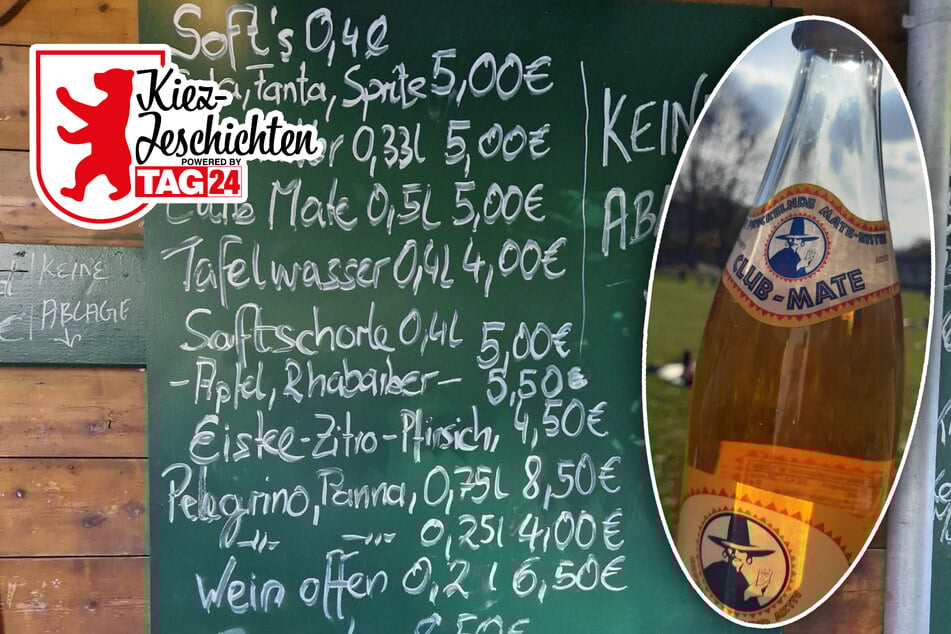 Kiez-
Jeschichten
POWERED BY
TAG24
Soft's 0,4l
Fanta, Sprite 5,00€
0,33l 5,00€
Mate 0,5l 5,00€
Tafelwasser 0,4l 4,00€
Saftschorle 0,4l 5,00€
-Apfel, Rhabarber- 5,50€
Eistee-Zitro-Pfirsich, 4,50€
Pelegrino, Panna, 0,75l 8,50€
0,25l 4,00€
Wein offen 0,2l 6,50€
8,50€
KEINE
ABLAGE
MATE-
CLUB-MATE